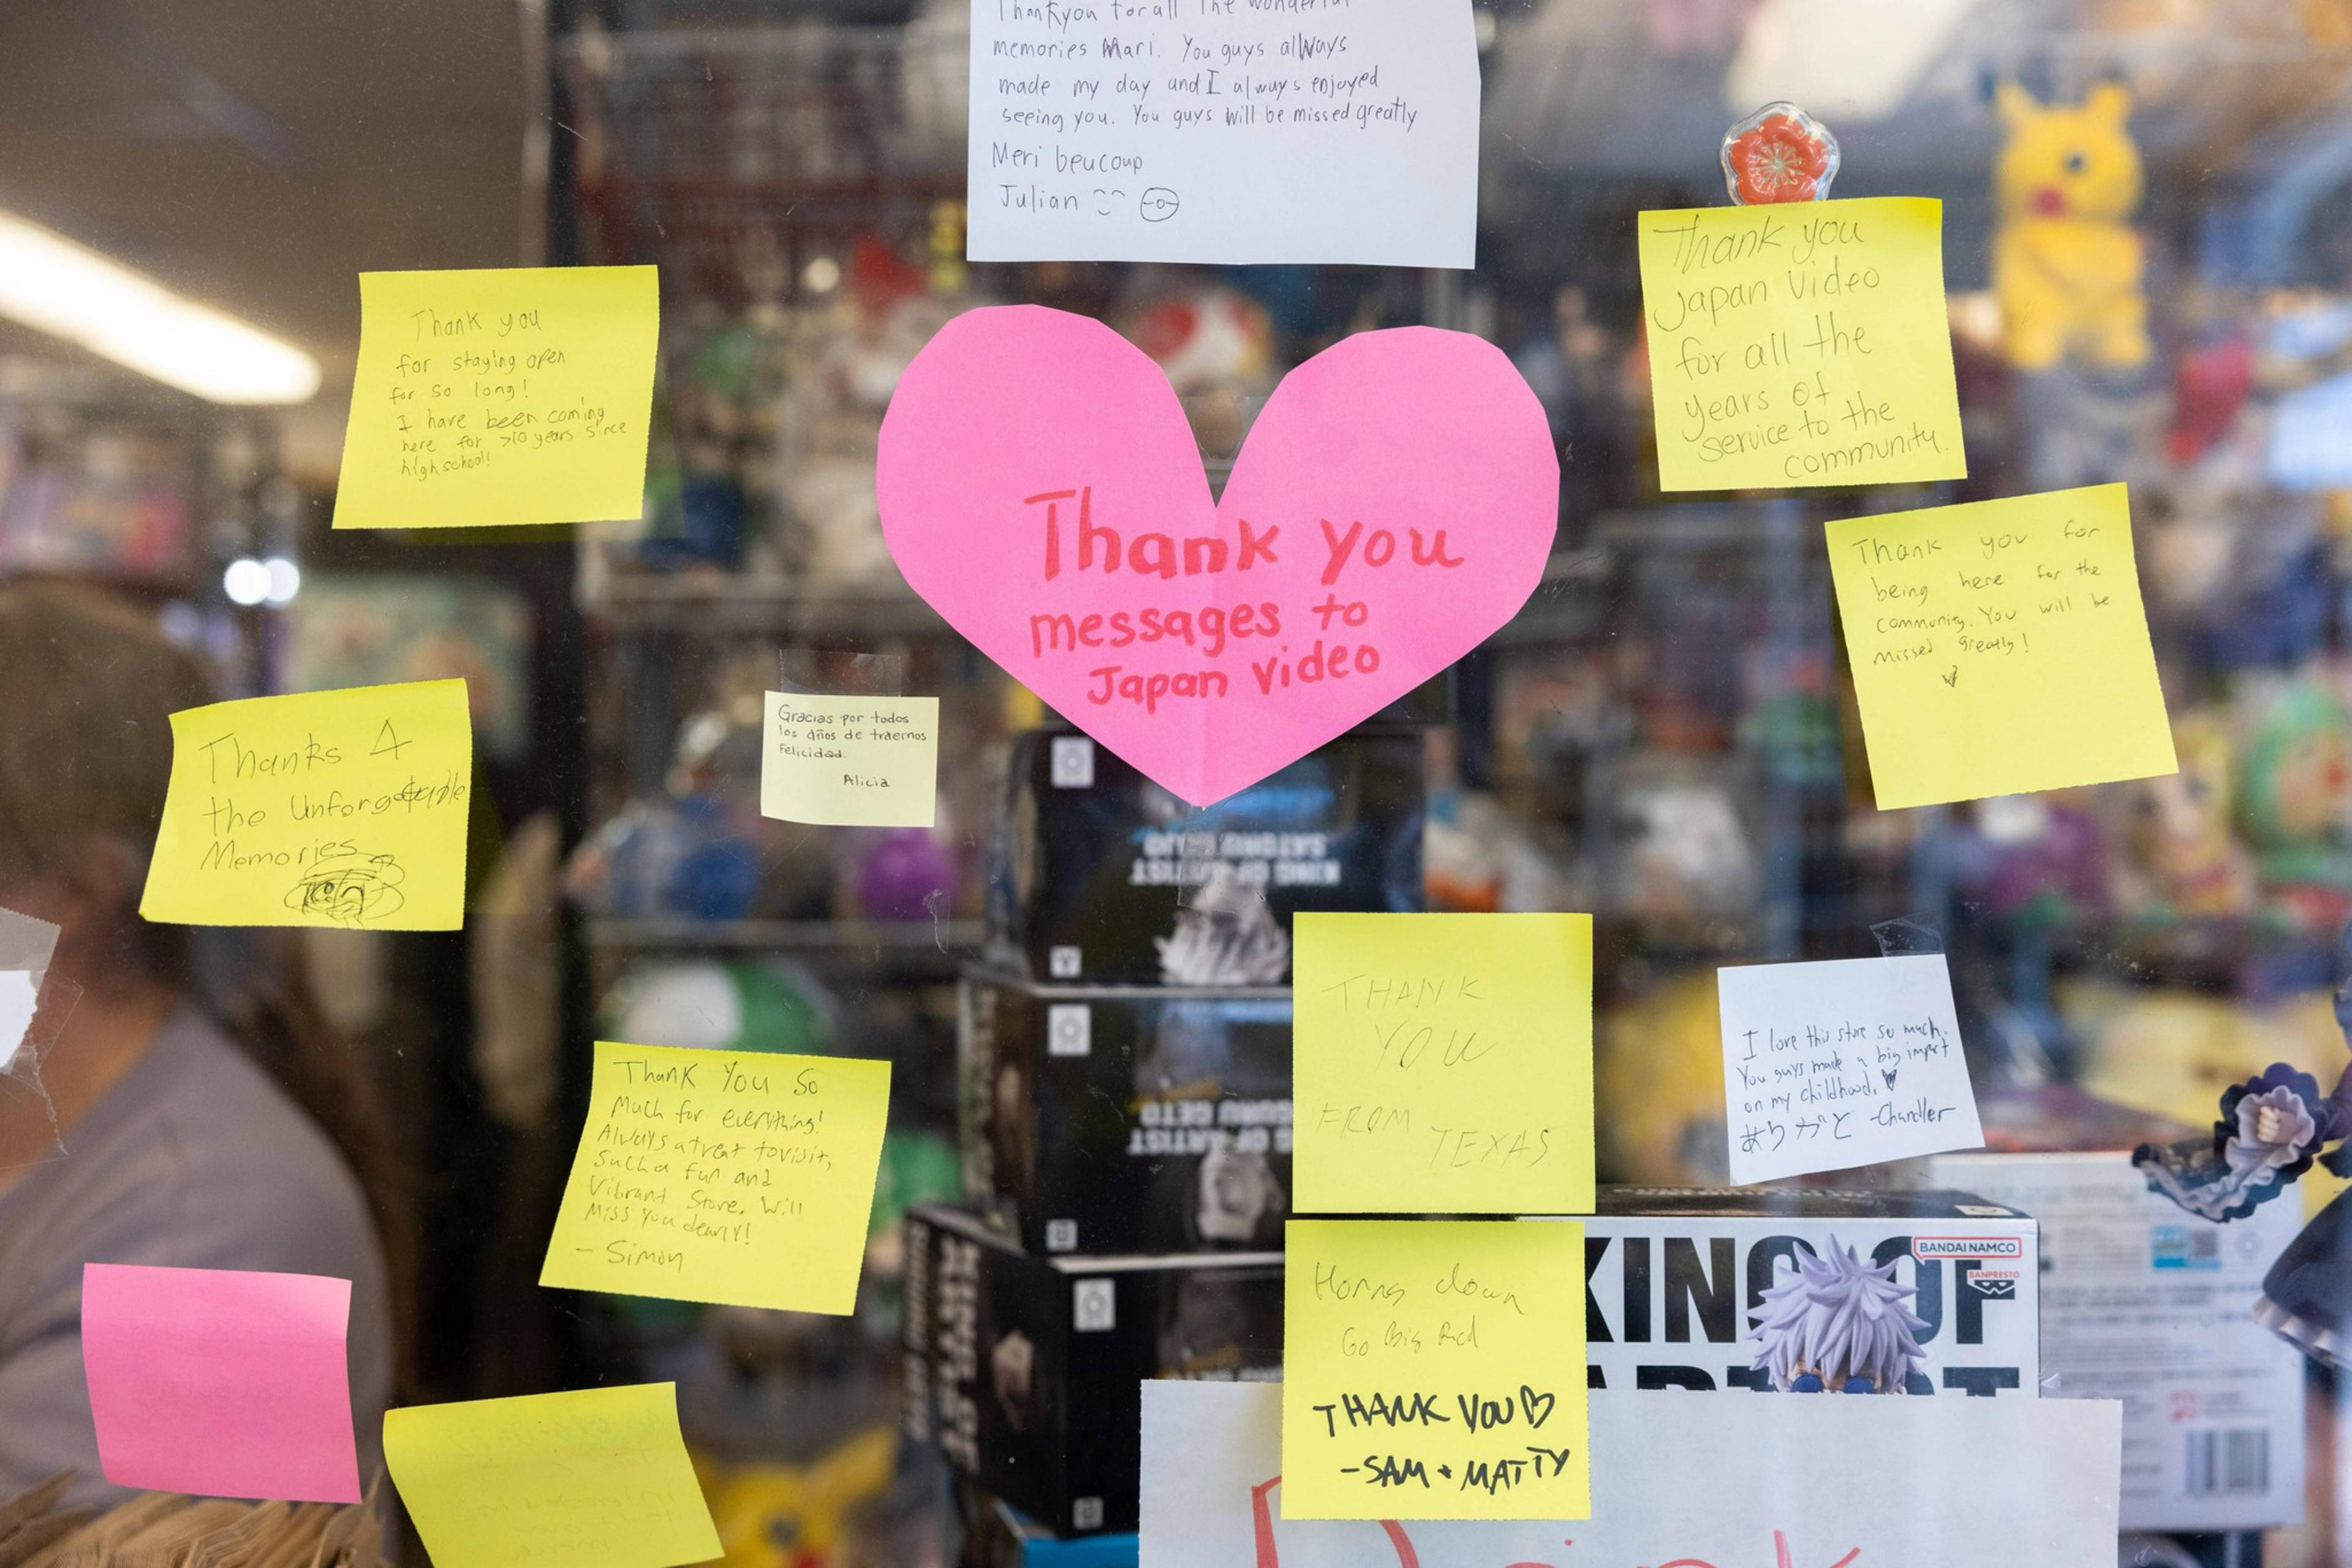 Thankyou for all the wonderful
memories Mari. You guys always
made my day and I always enjoyed
seeing you. You guys will be missed greatly
Meri beucoup
Julian
Thank you
for staying open
for so long!
I have been coming
here for >10 years since
highschool!
Thank you
messages to
Japan video
Thank you
Japan Video
for all the
years of
service to the
community.
Thank you for
being here for the
community. You will be
missed greatly!
Thanks 4
the Unforgettable
Memories
Gracias por todos
los años de traernos
Felicidad.
Alicia
KING OF ARTIST
SATORU GOJO
Thank You So
Much for everything!
Always a treat to visit,
Such a fun and
Vibrant Store. Will
Miss you dearly!
- Simon
THANK
YOU
FROM
TEXAS
I love this store so much.
You guys made a big impact
on my childhood.
ありがと -Chandler
Horns down
Go Big Red
THANK YOU
-SAM + MATTY
KING OF
BANDAI NAMCO
BANPRESTO
Drink